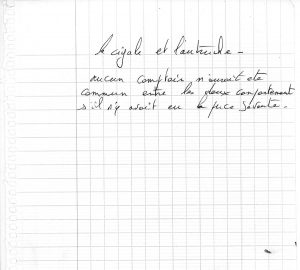 la cigale et l'autruche -
aucun comptoir n'aurait été
commun entre les deux comportement
s'il n'y avait eu la puce savante.